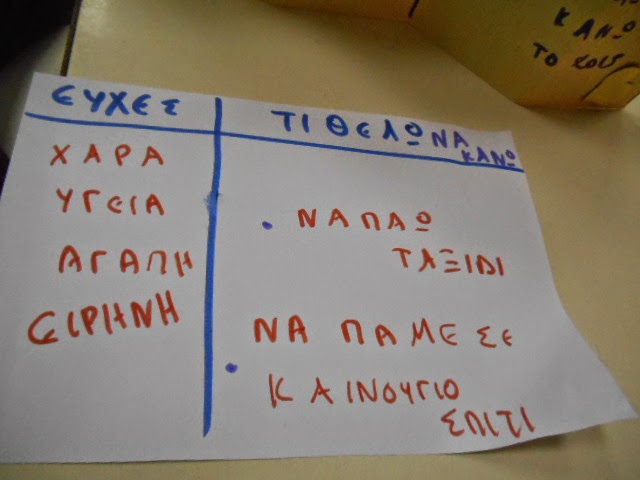 ΕΥΧΕΣ
ΧΑΡΑ
ΥΓΕΙΑ
ΑΓΑΠΗ
ΕΙΡΗΝΗ
ΤΙ ΘΕΛΩ ΝΑ
ΚΑΝΩ
ΝΑ ΠΑΩ
ΤΑΞΙΔΙ
ΝΑ ΠΑΜΕ ΣΕ
ΚΑΙΝΟΥΓΙΟ
ΣΠΙΤΙ
ΚΑΝΩ
ΤΟ